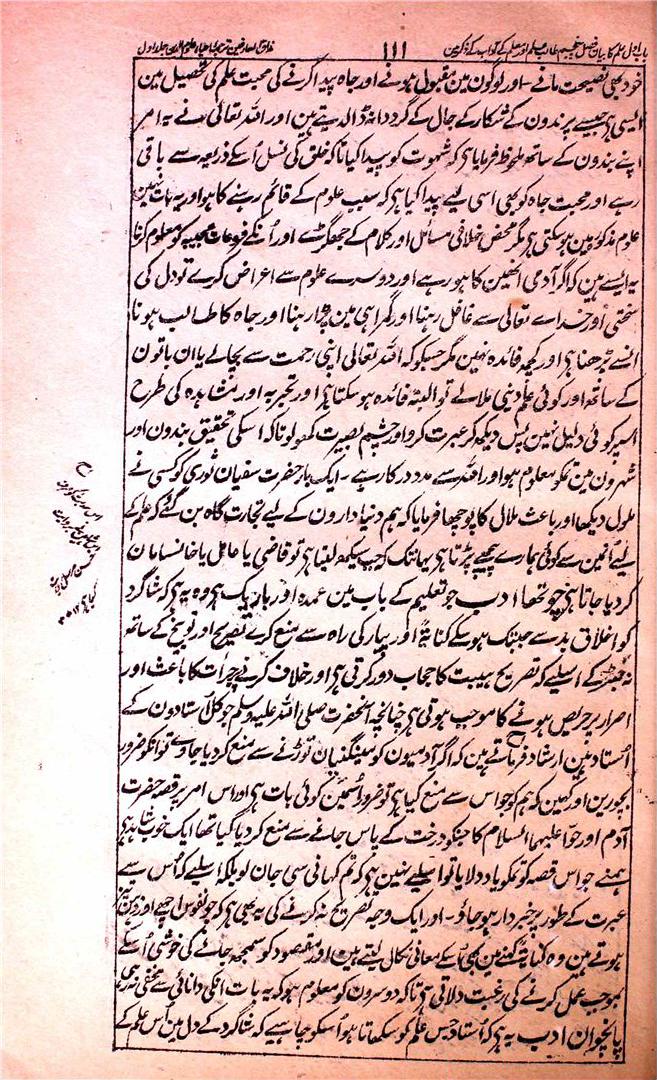 باب اول علم کا بیان فصل پنجم طالب علم اور معلم کے آداب کے ذکر مین
۱۱۱
مذاق العارفین ترجمہ احیاء علوم الدین جلد اول
خود بھی نصیحت مانے۔ اور لوگون مین مقبول ہونے اور جاہ پیدا کرنے کی محبت علم کی تحصیل مین
ایسی ہی جیسے پرندون کے شکار کے جال کے گرد دانہ ڈالدیتے ہین اور اللہ تعالیٰ نے یہ امر
اپنے بندون کے ساتھ ملحوظ فرمایا ہی کہ شہوت کو پیدا کیا تاکہ خلق کی نسل اُسکے ذریعہ سے باقی
رہے اور محبت جاہ کو بھی اسی لیے پیدا کیا ہی کہ سبب علوم کے قائم رہنے کا ہو اور یہ بات اِنھین
علوم مذکورہ مین ہوسکتی ہی مگر محض خلافی مسائل اور کلام کے جھگڑے اور اُنکے فروعات عجیبہ کو معلوم کرنا
یہ ایسے ہین کہ اگر آدمی انھین کا ہو رہے اور دوسرے علوم سے اعراض کرے تو دل کی
سختی اور خداے تعالیٰ سے غافل رہنا اور گمراہی مین پڑا رہنا اور جاہ کا طالب ہونا
انسے بڑھتا ہی اور کچھ فائدہ نہین مگر جسکو کہ اللہ تعالیٰ اپنی رحمت سے بچالے یا ان باتون
کے ساتھ اور کوئی علم دینی ملالے تو البتہ فائدہ ہو سکتا ہی اور تجربہ اور مشاہدہ کی طرح
اسپر کوئی دلیل نہین پس دیکھکر عبرت کرو اور چشم بصیرت کھولو تاکہ اسکی تحقیق بندون اور
شہرون مین تمکو معلوم ہو اور اللہ سے مدد درکار ہے۔ ایک بار حضرت سفیان ثوری کو کسی نے
ملول دیکھا اور باعث ملال کا پوچھا فرمایا کہ ہم دنیا دارون کے لیے تجارت گاہ بن گئے کہ علم کے
لیے اُنمین سے کوئی ہمارے پیچھے پڑتا ہی یہانتک کہ جب سیکھ لیتا ہی تو قاضی یا عامل یا خانسامان
کر دیا جاتا ہی چوتھا ادب جو تعلیم کے باب مین عمدہ اور باریک ہی وہ یہ ہی کہ شاگرد
کو اخلاق بد سے جبتک ہوسکے کنایۃً اور پیار کی راہ سے منع کرے تصریح اور توبیخ کے ساتھ
نہ جھڑکے اسلیے کہ تصریح ہیبت کا حجاب دور کرتی ہی اور خلاف کرنے پر جرات کا باعث اور
اصرار پر حریص ہونے کا موجب ہوتی ہی چنانچہ آنحضرت صلی اللہ علیہ وسلم جو کل اُستادون کے
اُستاد ہین ارشاد فرماتے ہین کہ اگر آدمیون کو مینگنیان توڑنے سے منع کردیا جاوے تو انکو ضرور
چورین اور کہین کہ ہم کو جو اس سے منع کیا ہی تو ضرور اُسمین کوئی بات ہی اور اس امر پر قصہ حضرت
آدم اور حوا علیہما السلام کا جنکو درخت کے پاس جانے سے منع کردیا گیا تھا ایک خوب شاہد ہی
ہمنے جو اس قصہ کو تمکو یاد دلایا تو اسلیے نہین ہی کہ تم کہانی سی جان لو بلکہ اسلیے کہ اُس سے
عبرت کے طور پر خبردار ہوجاؤ۔ اور ایک وجہ تصریح نہ کرنے کی یہ بھی ہی کہ جو نفوس اچھے اور ذہن تیز
ہوتے ہین وہ کنایۃً کہنے مین بھی اُسکے معانی نکال لیتے ہین اور مقصود کو سمجھ جانے کی خوشی اُسکے
بموجب عمل کرنے کی رغبت دلاتی ہی تاکہ دوسرون کو معلوم ہو کہ یہ بات انکی دانائی سے مخفی نہ رہی
پانچوان ادب یہ ہی کہ اُستاد جس علم کو سکھاتا ہو اُسکو چاہیے کہ شاگرد کے دل مین اُس علم کے